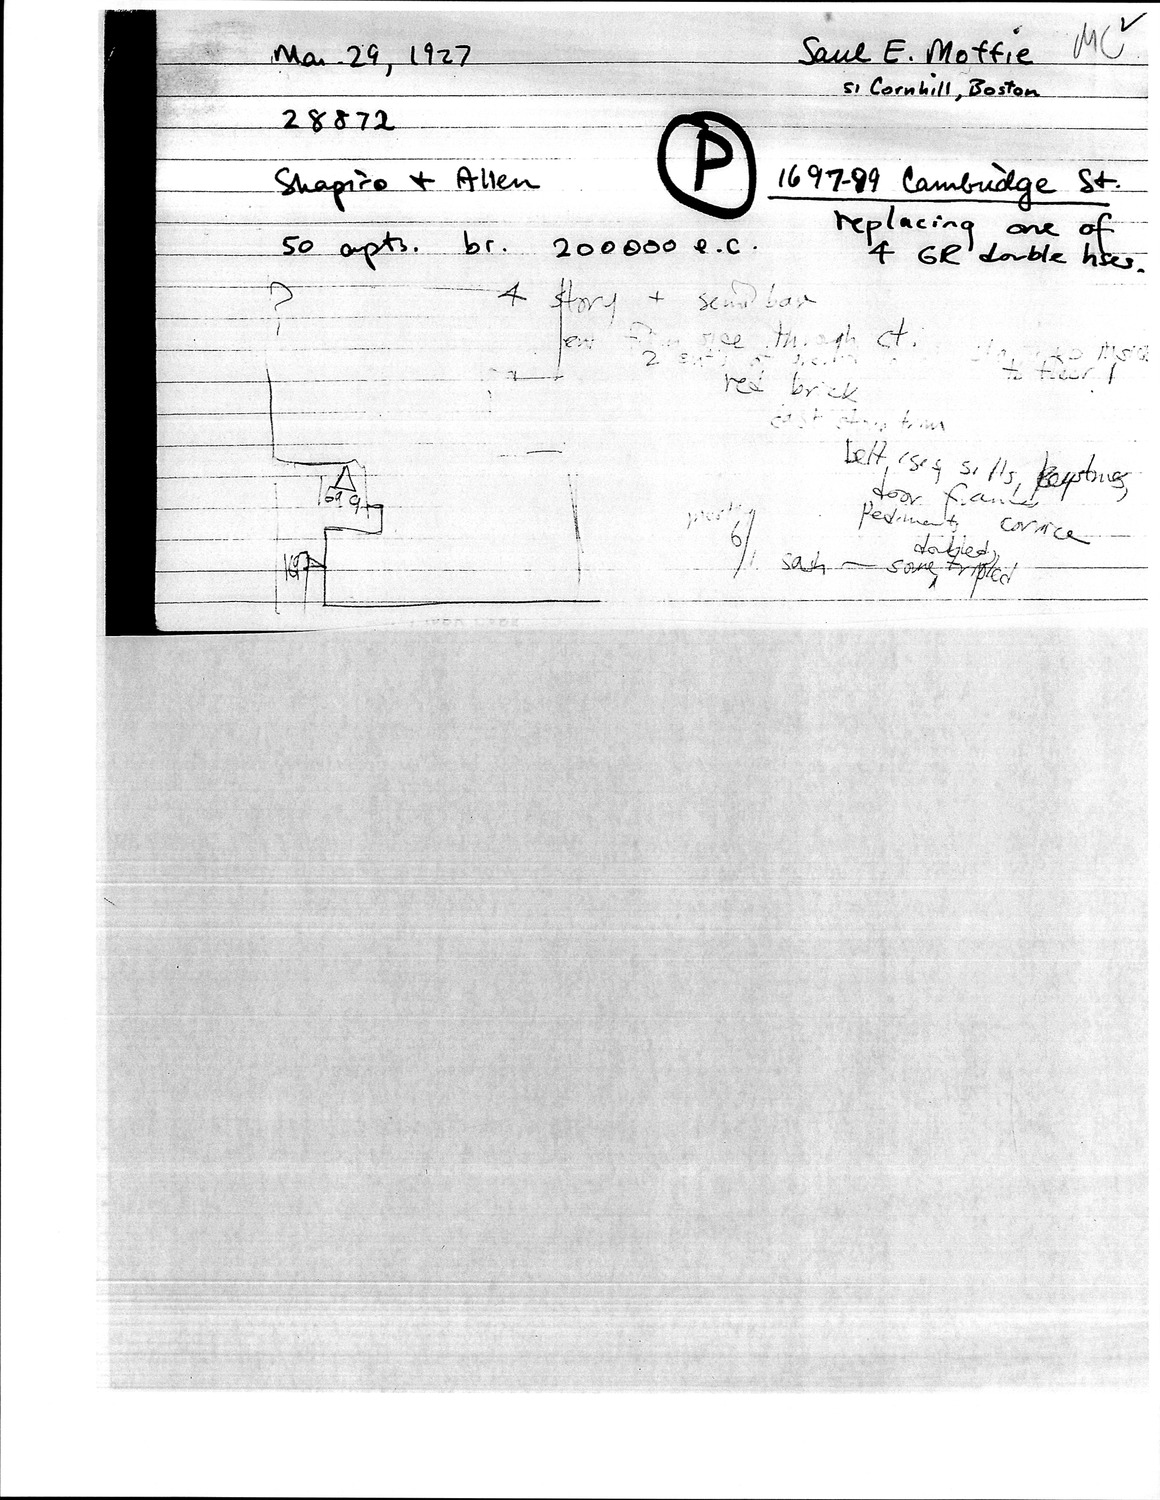 Mar. 29, 1927
Saul E. Moffie
MC ✓
51 Cornhill, Boston
28872
P
Shapiro + Allen
1697-99 Cambridge St.
replacing one of
50 apts. br. 200000 e.c.
4 GR double hses.
?
4 story + semi bas
through ct.
2
to floor 1
red brick
trim
belt, sills, keystones,
1699
door
pediments cornice
6/1
doubled,
sash — some tripled
1697